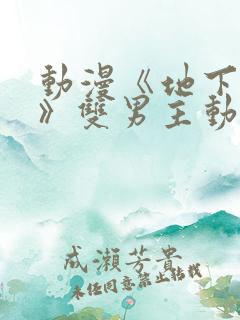 動漫《地下
》雙男主動
成瀬芳貴
未经同意禁止转载